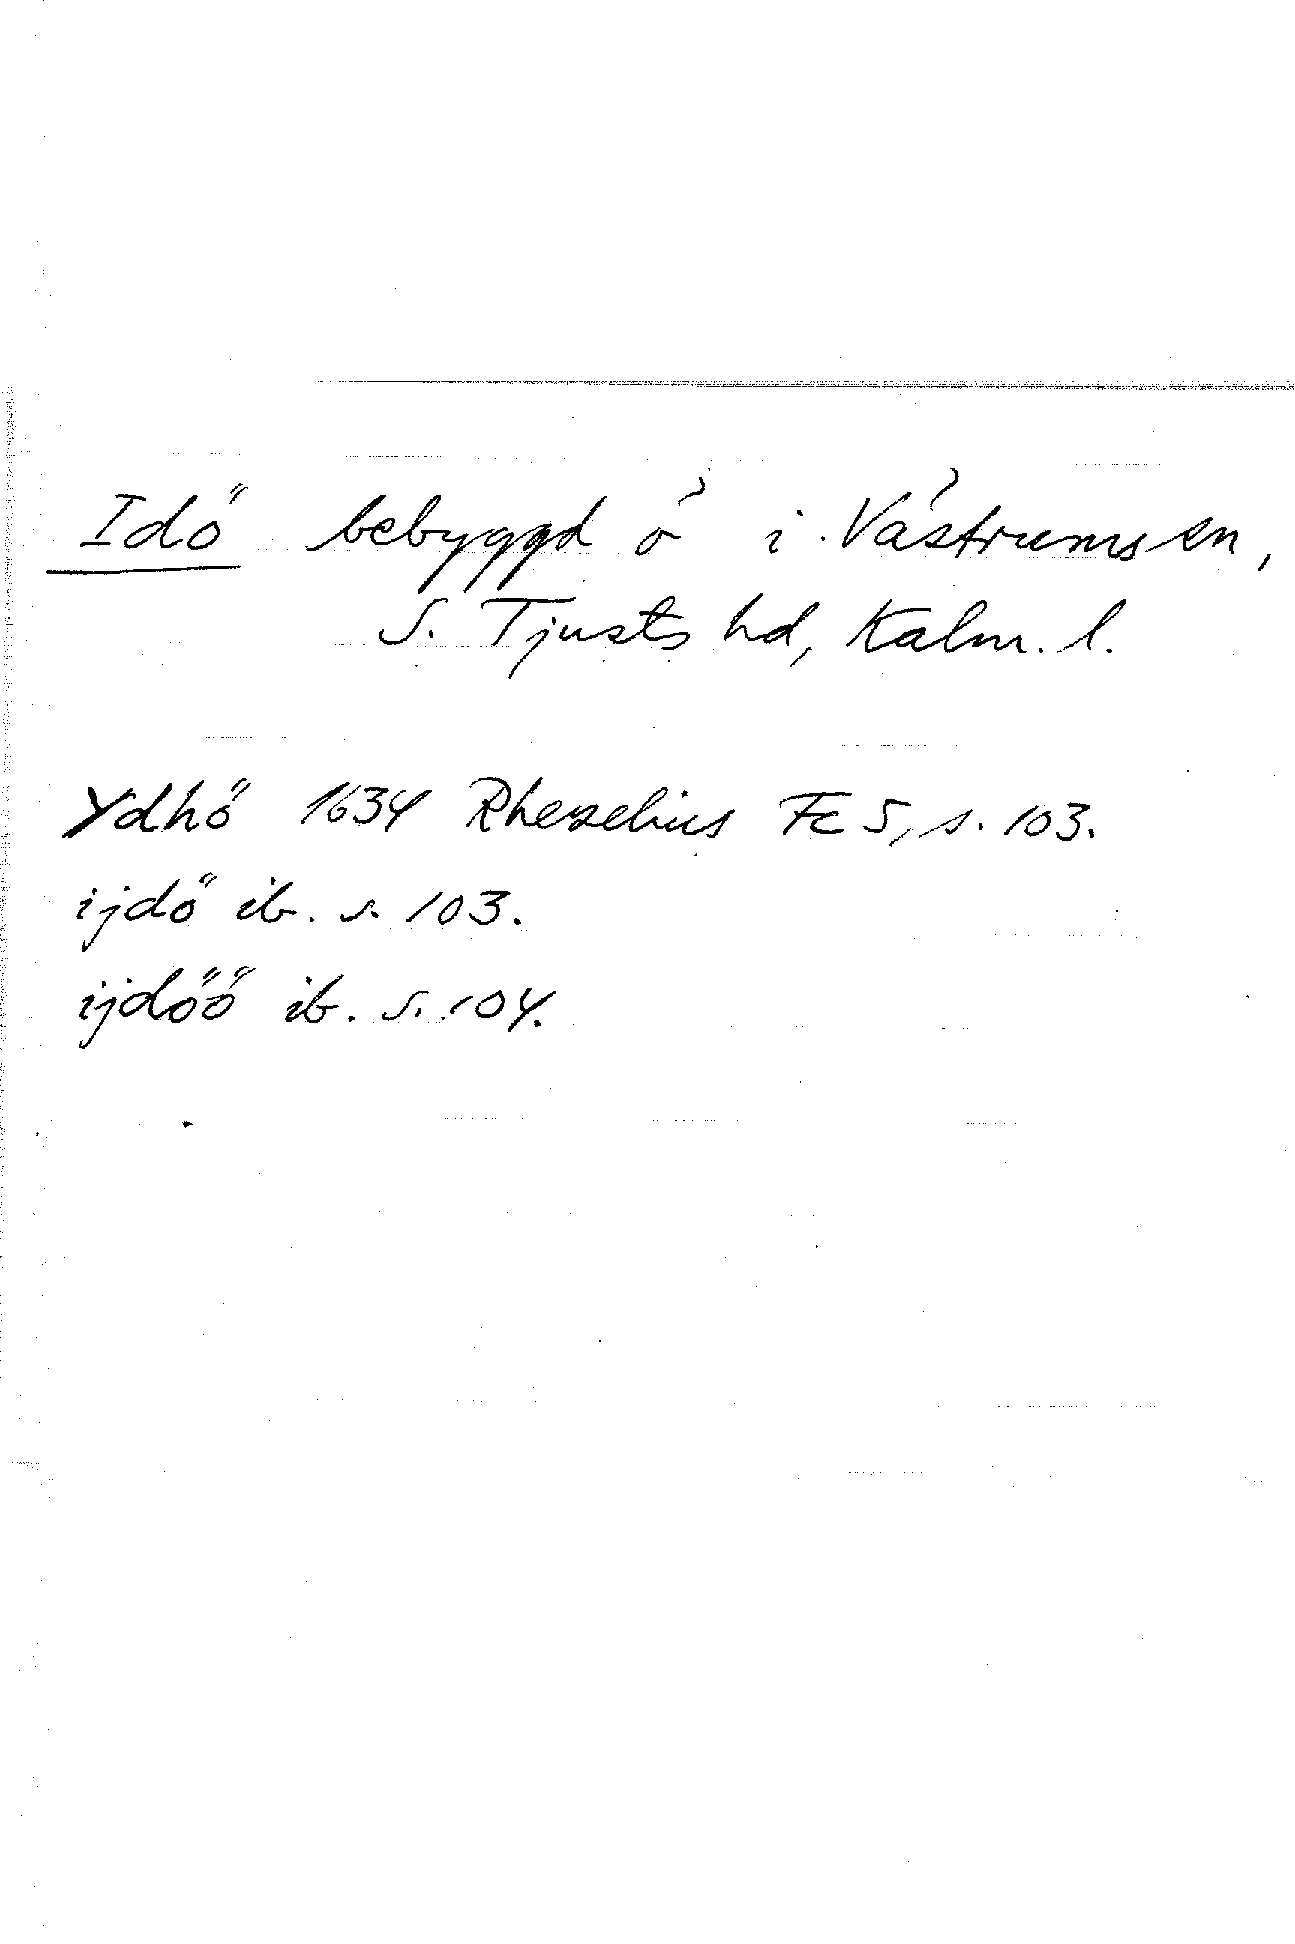 Idö bebyggd ö i Västrums sn,
S. Tjusts hd, Kalm. l.
Ydhö 1634 Rhezelius Fc 5, s. 103.
ijdö ib. s. 103.
ijdöö ib. s. 104.